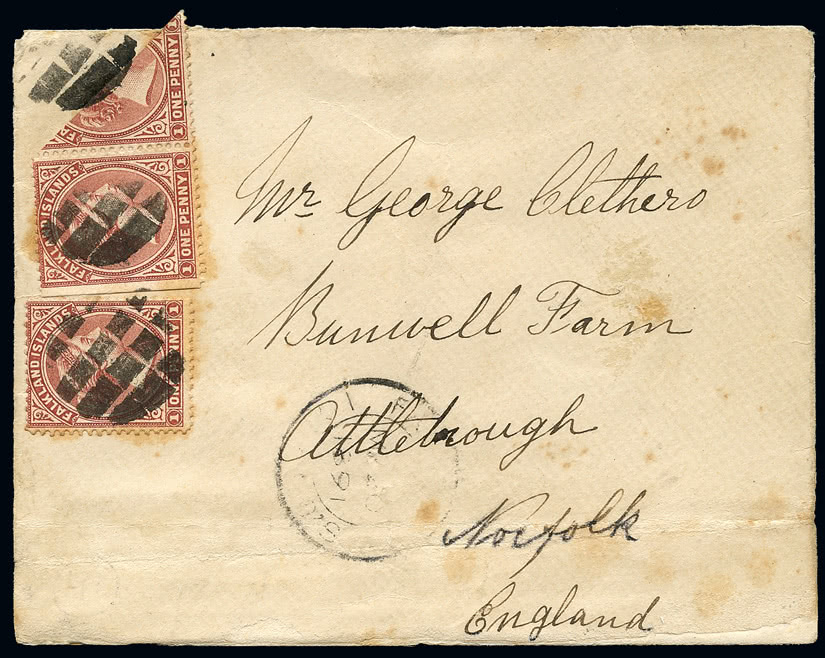 ONE PENNY
FALKLAND ISLANDS
ONE PENNY
FALKLAND ISLANDS
ONE PENNY
Mr George Clethero
Bunwell Farm
Attlebrough
Norfolk
England